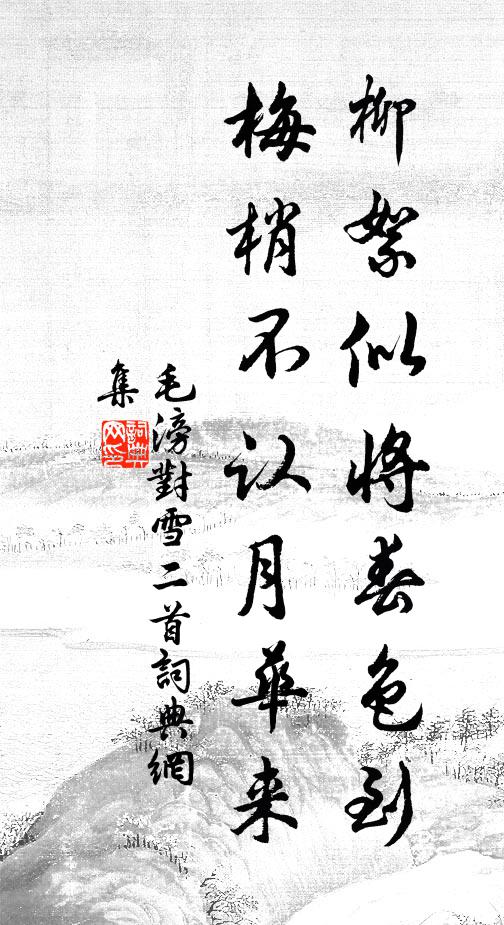 柳絮似將春色到
梅梢不认月華来
毛滂對雪二首詞典網
集
詞典網